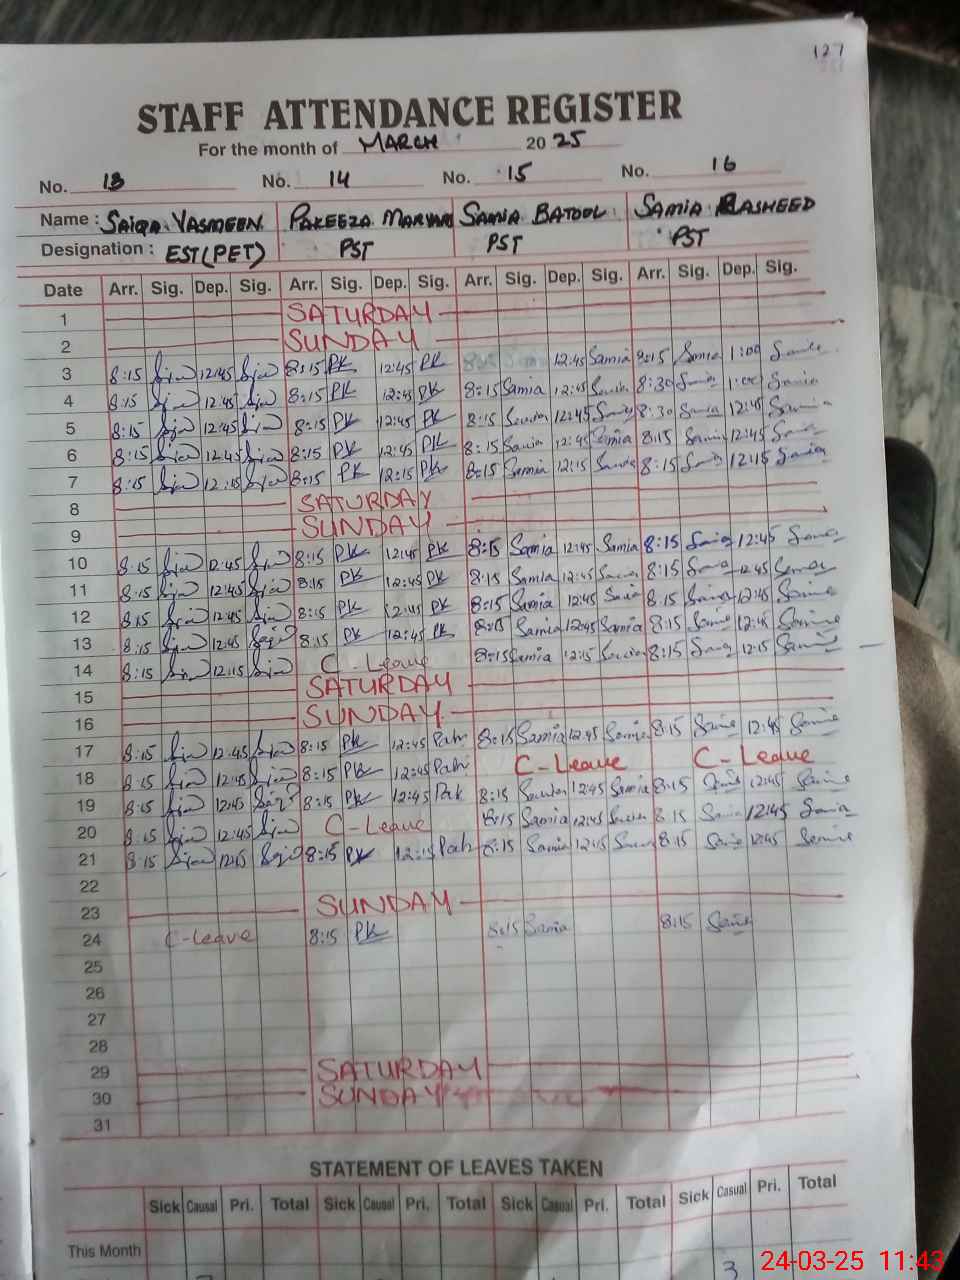 127
STAFF ATTENDANCE REGISTER
For the month of MARCH 2025
No. 13 No. 14 No. 15 No. 16
Name : SAIQA YASMEEN PAKEEZA MARYAM SAMIA BATOOL SAMIA RASHEED
Designation : EST(PET) PST PST PST
Date Arr. Sig. Dep. Sig. Arr. Sig. Dep. Sig. Arr. Sig. Dep. Sig. Arr. Sig. Dep. Sig.
1 SATURDAY
2 SUNDAY
3 8:15 12:45 8:15 PK 12:45 PK 12:45 Samia 8:15 Samia 1:00
4 8:15 12:45 8:15 PK 12:45 PK 8:15 Samia 12:45 8:30 1:00 Samia
5 8:15 12:45 8:15 PK 12:45 PK 8:15 12:45 8:30 12:45
6 8:15 12:45 8:15 PK 12:45 PK 8:15 12:45 Samia 8:15 12:45
7 8:15 12:15 8:15 PK 12:15 PK 8:15 Samia 12:15 8:15 12:15
8 SATURDAY
9 SUNDAY
10 8:15 12:45 8:15 PK 12:45 PK 8:15 Samia 12:45 Samia 8:15 12:45
11 8:15 12:45 8:15 PK 12:45 PK 8:15 Samia 12:45 8:15 12:45
12 8:15 12:45 8:15 PK 12:45 PK 8:15 Samia 12:45 8:15 12:45
13 8:15 12:45 8:15 PK 12:45 PK 8:15 Samia 12:45 Samia 8:15 12:45
14 8:15 12:15 C-Leave 8:15 Samia 12:15 8:15 12:15
15 SATURDAY
16 SUNDAY
17 8:15 12:45 8:15 PK 12:45 8:15 Samia 12:45 8:15 12:45
18 8:15 12:45 8:15 PK 12:45 C-Leave C-Leave
19 8:15 12:45 8:15 PK 12:45 Pak 8:15 12:45 Samia 8:15 12:45
20 8:15 12:45 C-Leave 8:15 Samia 12:45 8:15 12:45
21 8:15 12:15 8:15 PK 12:15 8:15 Samia 12:15 8:15 12:45
22
23 SUNDAY
24 C-Leave 8:15 PK 8:15 Samia 8:15
25
26
27
28
29 SATURDAY
30 SUNDAY
31
STATEMENT OF LEAVES TAKEN
Sick Casual Pri. Total Sick Casual Pri. Total Sick Casual Pri. Total Sick Casual Pri. Total
This Month 3
24-03-25 11:43